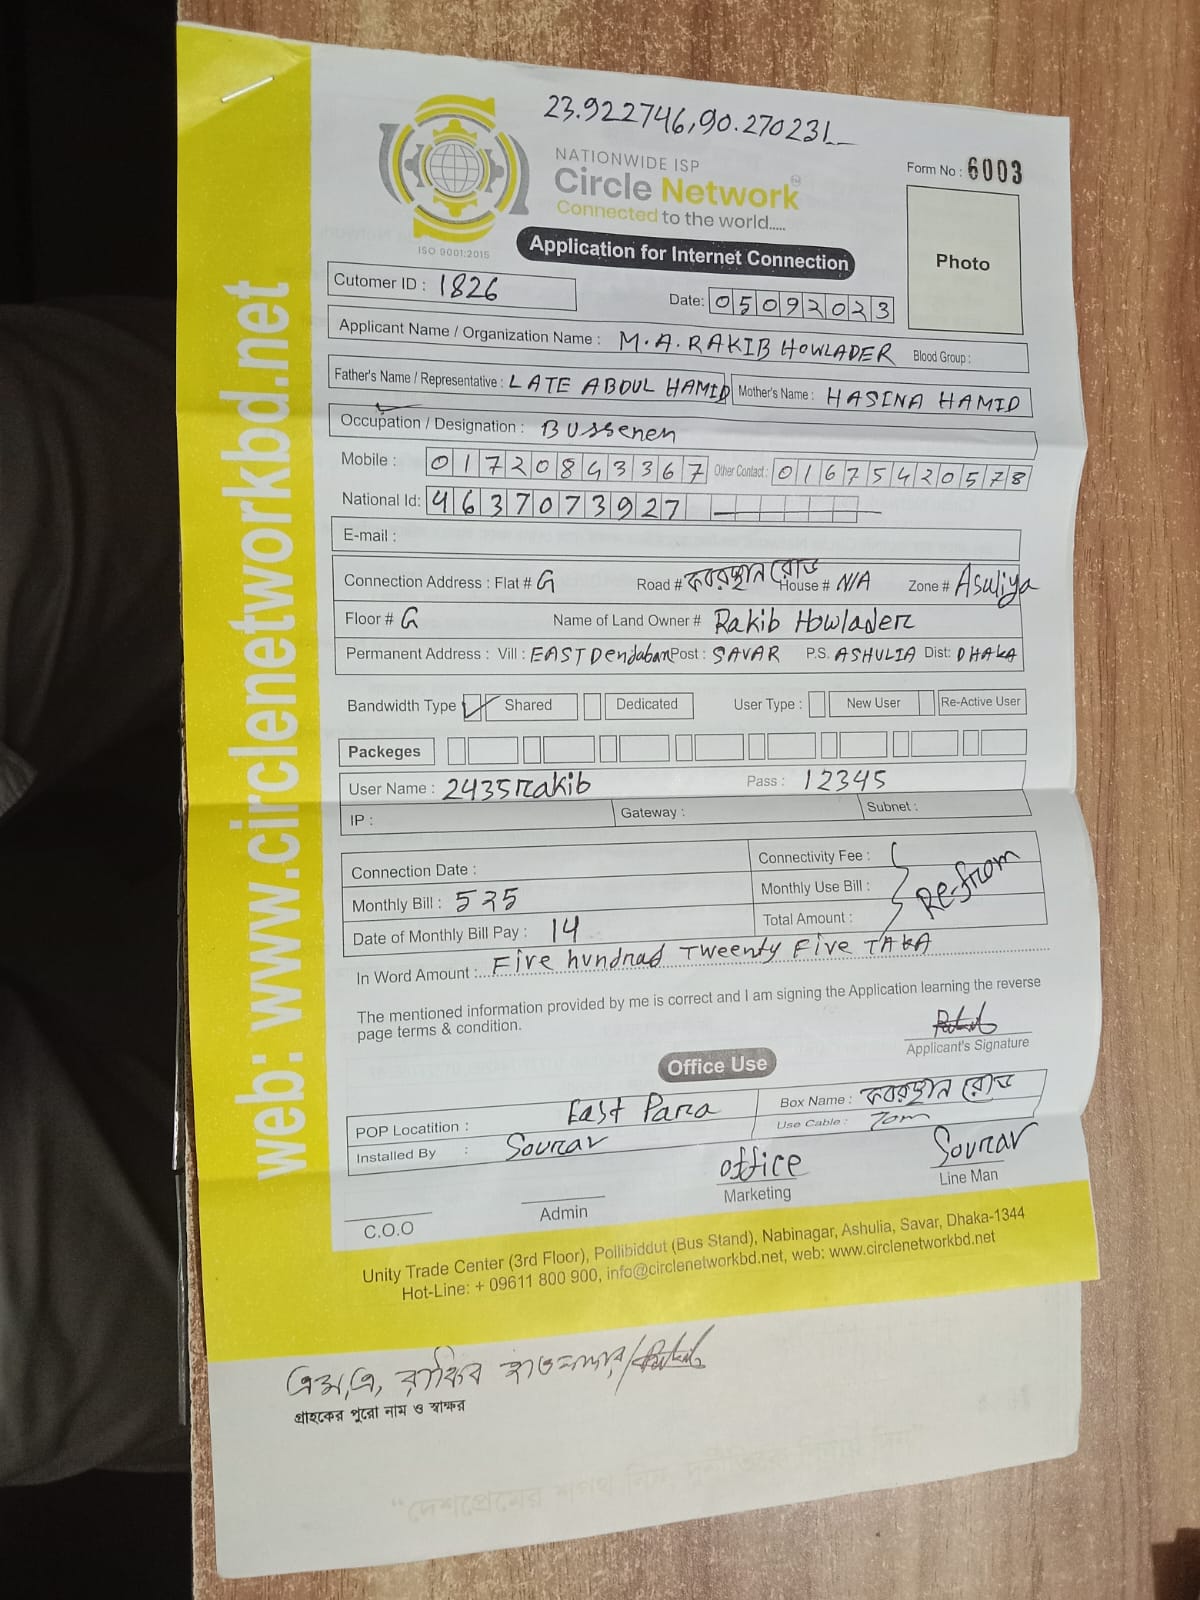 23.922746,90.270231
NATIONWIDE ISP
Circle Network
Connected to the world.....
ISO 9001:2015
Form No : 6003
Photo
Application for Internet Connection
Cutomer ID : 1826
Date: 05092023
Applicant Name / Organization Name : M.A. RAKIB HOWLADER Blood Group :
Father's Name / Representative : LATE ABDUL HAMID Mother's Name : HASINA HAMID
Occupation / Designation : Bussenen
Mobile : 01720843367 Other Contact : 01675420578
National Id: 4637073927
E-mail :
Connection Address : Flat # G Road # কবরস্থান রোড House # N/A Zone # Asuliya
Floor # G Name of Land Owner # Rakib Howlader
Permanent Address : Vill : EAST Dendaban Post : SAVAR P.S. ASHULIA Dist: DHAKA
Bandwidth Type Shared Dedicated User Type : New User Re-Active User
Packeges
User Name : 2435rakib Pass : 12345
IP : Gateway : Subnet :
Connection Date : Connectivity Fee :
Monthly Bill : 525 Monthly Use Bill : Re-from
Date of Monthly Bill Pay : 14 Total Amount :
In Word Amount : Five hundrad Tweenty Five TAKA
The mentioned information provided by me is correct and I am signing the Application learning the reverse
page terms & condition.
Applicant's Signature
Office Use
POP Locatition : East Para Box Name : কবরস্থান রোড
Installed By : Sourav Use Cable : 70m
office Sourav
C.O.O Admin Marketing Line Man
Unity Trade Center (3rd Floor), Pollibiddut (Bus Stand), Nabinagar, Ashulia, Savar, Dhaka-1344
Hot-Line: + 09611 800 900, info@circlenetworkbd.net, web: www.circlenetworkbd.net
web: www.circlenetworkbd.net
এম,এ, রাকিব হাওলাদার/
গ্রাহকের পুরো নাম ও স্বাক্ষর